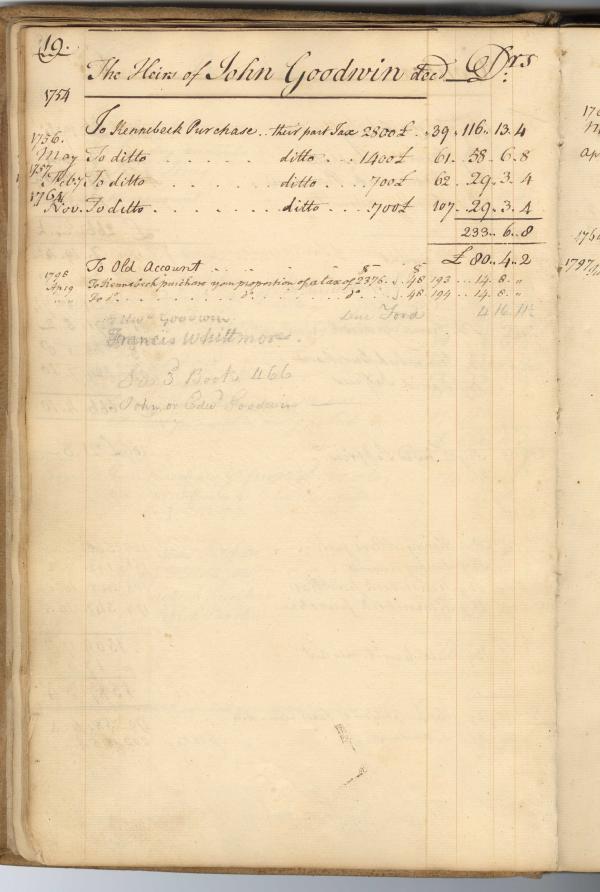 19.
The Heirs of John Goodwin decd. Drs
1754
To Kennebeck Purchase .. their part Tax 2800£ .. 39 .. 116 .. 13 .. 4
1756. May To ditto . . . . . ditto . . . 1400£ 61 .. 58 .. 6 .. 8
1757 Feby. To ditto . . . . . . ditto . . . . 700£ 62 .. 29 .. 3 .. 4
1764 Nov. To ditto . . . . . . . ditto . . . . 700£ 107 .. 29 .. 3 .. 4
233 .. 6 .. 8
To Old Account . . . . . . . . . £ 80 .. 4 .. 2
1798 Ap 19 To Kennebeck purchase your proportion of a tax of $2376 .. $48 193 .. 14 .. 8 .. "
" " To do . . . . . . do . . . . . do .. 48 194 .. 14 .. 8 .. "
Goodwin Due Ford 4 16 11½
Francis Whittmore.
3 Book 466
John or Edwd Goodwin
1797